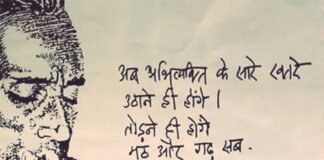 अब अभिव्यक्ति के सारे खतरे
उठाने ही होंगे।
तोड़ने ही होंगे
मठ और गढ़ सब.